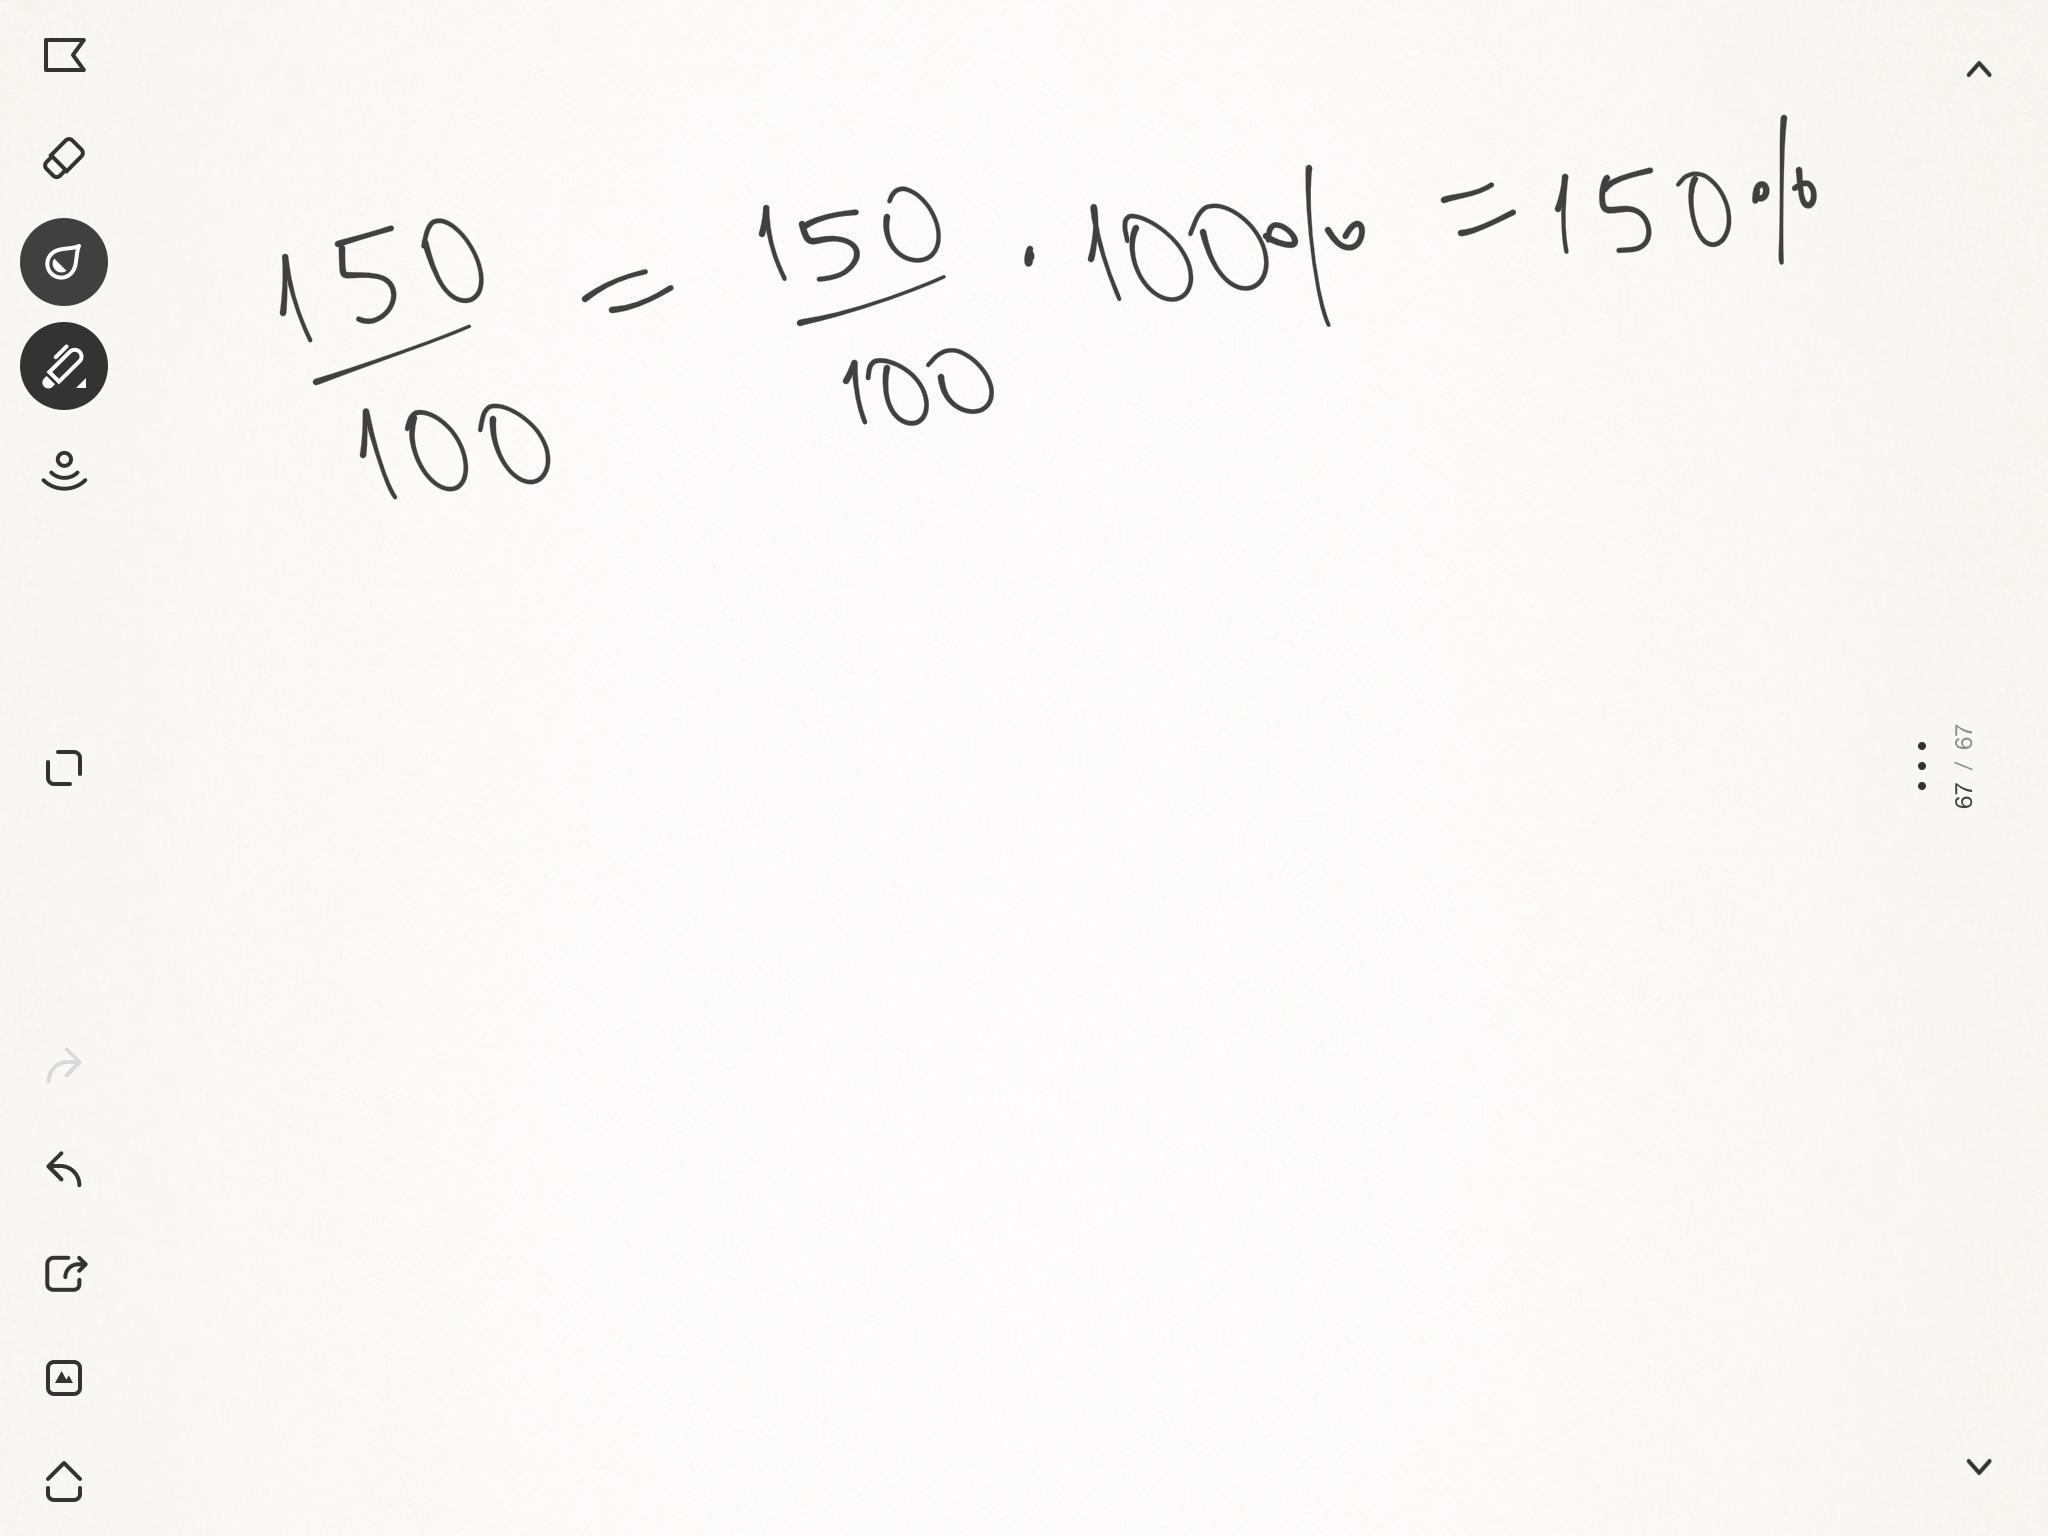 150/100 = 150/100 · 100% = 150%
67 / 67